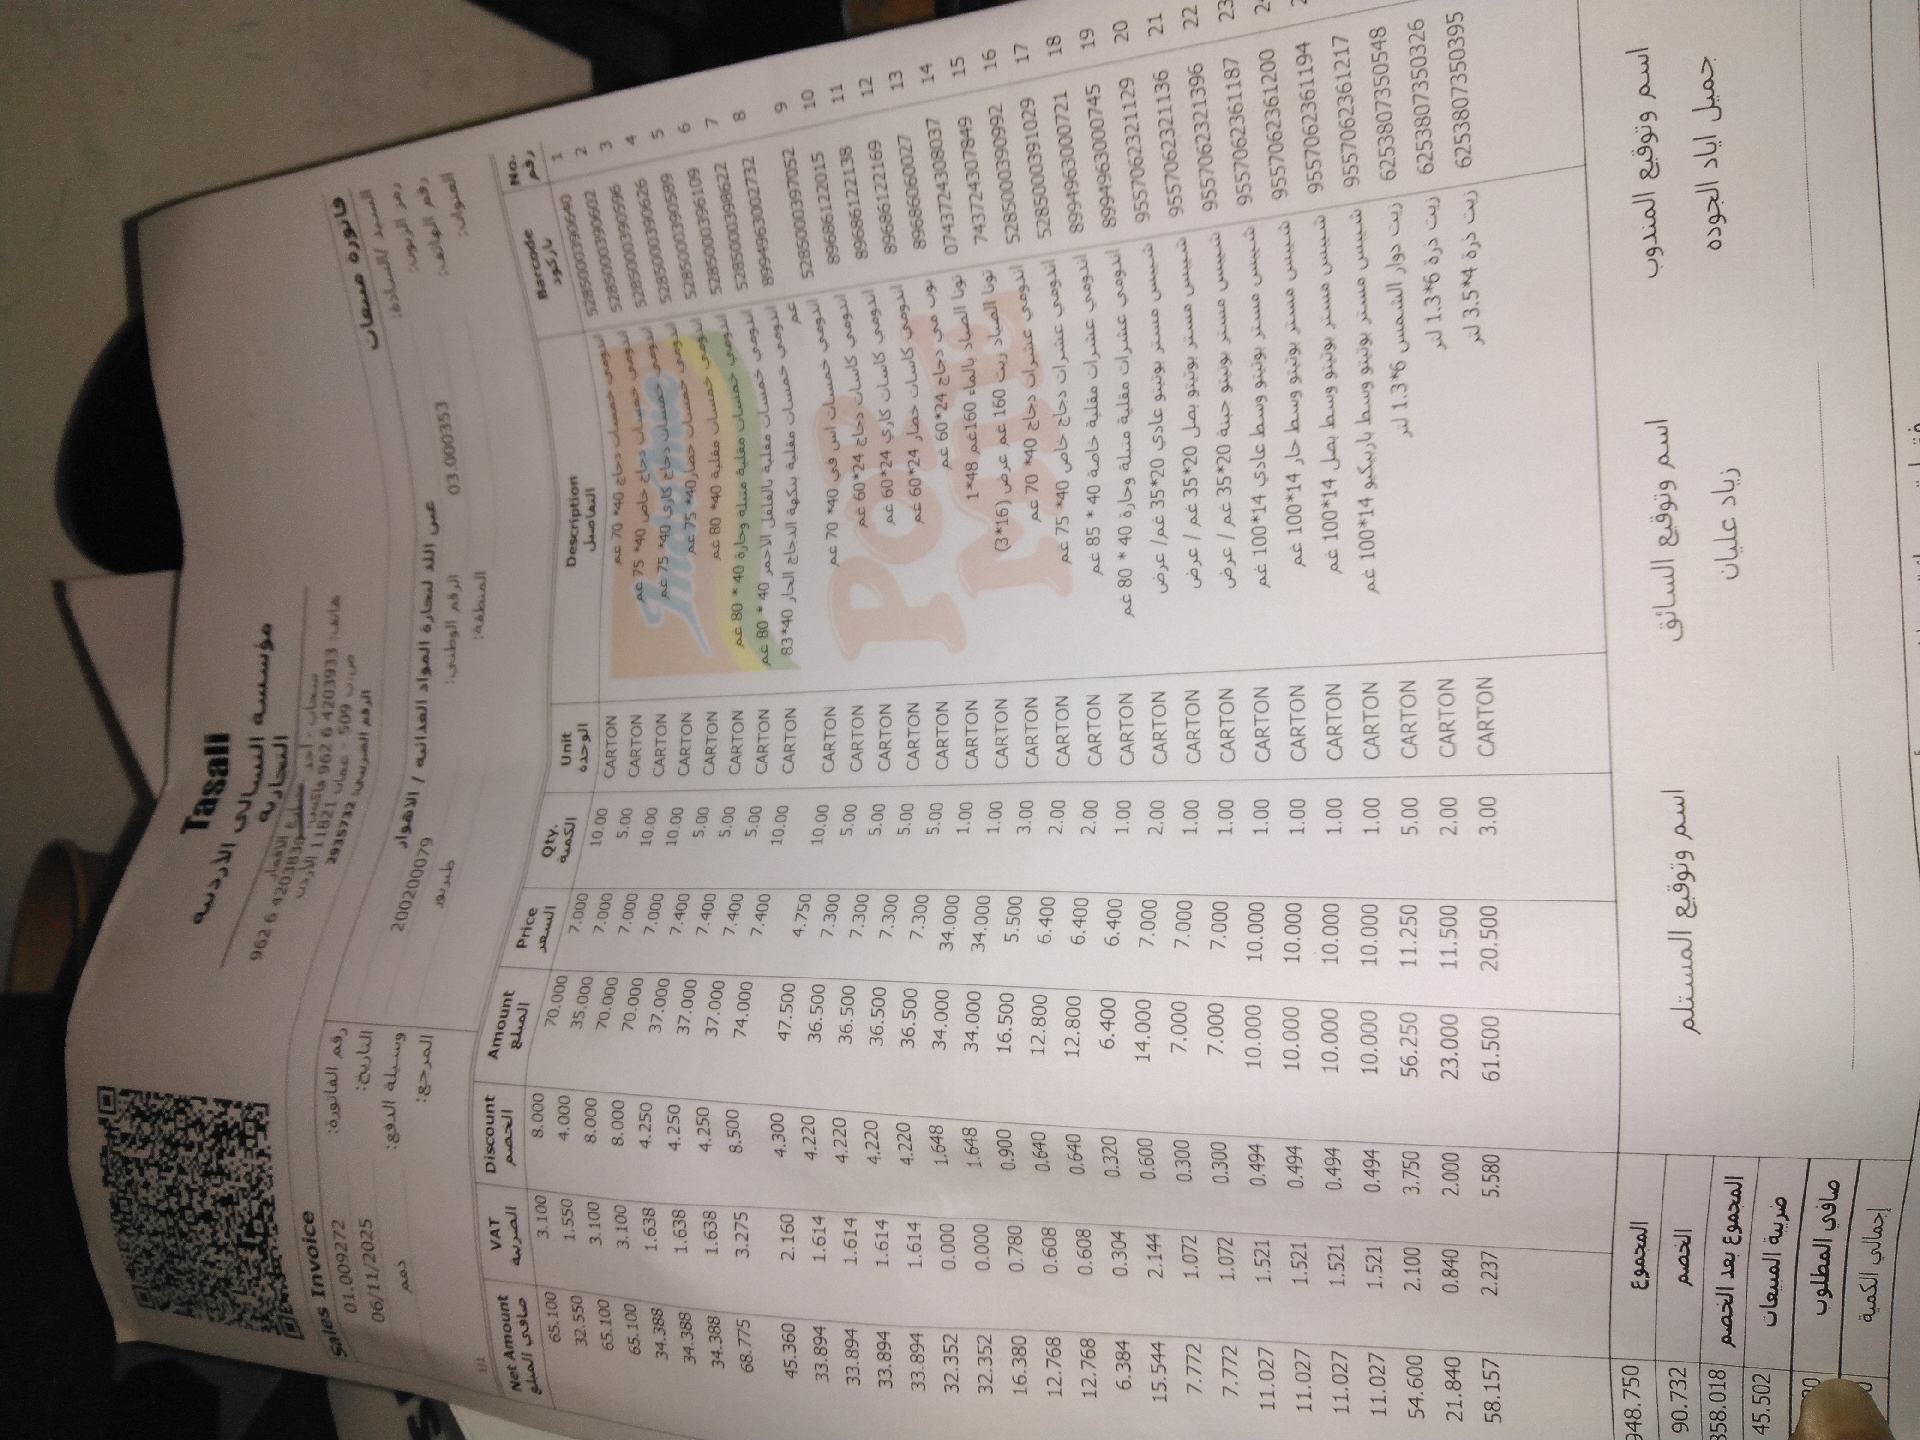 Tasali
مؤسسة التسالي الأردنية
التجارية
962 6 4203933
الرقم الضريبي: 2935732
Sales Invoice
فاتورة مبيعات
رقم الفاتورة: 01.009272
التاريخ: 06/11/2025
وسيلة الدفع: ذمم
المرجع:
السيد / السادة: عين الله لتجارة المواد الغذائية / الاهواز
رمز الزبون: 03.000353
الرقم الوطني: 200200079
رقم الهاتف:
المنطقة: طبربور
العنوان:
1/1
Net Amount VAT Discount Amount Price Qty. Unit Description Barcode No.
صافي المبلغ الضريبة الخصم المبلغ السعر الكمية الوحدة التفاصيل باركود رقم
65.100 3.100 8.000 70.000 7.000 10.00 CARTON اندومي خمسات دجاج 40* 70 غم 5285000390640 1
32.550 1.550 4.000 35.000 7.000 5.00 CARTON اندومي خمسات دجاج خاص 40* 75 غم 5285000390602 2
65.100 3.100 8.000 70.000 7.000 10.00 CARTON اندومي خمسات دجاج كاري 40* 75 غم 5285000390596 3
65.100 3.100 8.000 70.000 7.000 10.00 CARTON اندومي خمسات خضار 40* 75 غم 5285000390626 4
34.388 1.638 4.250 37.000 7.400 5.00 CARTON اندومي خمسات مقلية 40* 80 غم 5285000390589 5
34.388 1.638 4.250 37.000 7.400 5.00 CARTON اندومي خمسات مقلية متبلة وحارة 40 * 80 غم 5285000396109 6
34.388 1.638 4.250 37.000 7.400 5.00 CARTON اندومي خمسات مقلية بالفلفل الاحمر 40 * 80 غم 5285000398622 7
68.775 3.275 8.500 74.000 7.400 10.00 CARTON اندومي خمسات مقلية بنكهة الدجاج الحار 40*83 غم 8994963002732 8
45.360 2.160 4.300 47.500 4.750 10.00 CARTON اندومي خمسات اس في 40* 70 غم 5285000397052 9
33.894 1.614 4.220 36.500 7.300 5.00 CARTON اندومي كاسات دجاج 24*60 غم 89686122015 10
33.894 1.614 4.220 36.500 7.300 5.00 CARTON اندومي كاسات كاري 24*60 غم 89686122138 11
33.894 1.614 4.220 36.500 7.300 5.00 CARTON اندومي كاسات خضار 24*60 غم 89686122169 12
33.894 1.614 4.220 36.500 7.300 5.00 CARTON بوب مي دجاج 24*60 غم 89686060027 13
32.352 0.000 1.648 34.000 34.000 1.00 CARTON تونا الصياد بالماء 160غم 48*1 0743724308037 14
32.352 0.000 1.648 34.000 34.000 1.00 CARTON تونا الصياد زيت 160 غم عرض (16*3) 743724307849 15
16.380 0.780 0.900 16.500 5.500 3.00 CARTON اندومي عشرات دجاج 40* 70 غم 5285000390992 16
12.768 0.608 0.640 12.800 6.400 2.00 CARTON اندومي عشرات دجاج خاص 40* 75 غم 5285000391029 17
12.768 0.608 0.640 12.800 6.400 2.00 CARTON اندومي عشرات مقلية خاصة 40 * 85 غم 8994963000721 18
6.384 0.304 0.320 6.400 6.400 1.00 CARTON اندومي عشرات مقلية متبلة وحارة 40 * 80 غم 8994963000745 19
15.544 2.144 0.600 14.000 7.000 2.00 CARTON شيبس مستر بوتيتو عادي 20*35 غم/ عرض 9557062321129 20
7.772 1.072 0.300 7.000 7.000 1.00 CARTON شيبس مستر بوتيتو بصل 20*35 غم / عرض 9557062321136 21
7.772 1.072 0.300 7.000 7.000 1.00 CARTON شيبس مستر بوتيتو جبنة 20*35 غم / عرض 9557062321396 22
11.027 1.521 0.494 10.000 10.000 1.00 CARTON شيبس مستر بوتيتو وسط عادي 14*100 غم 9557062361187 23
11.027 1.521 0.494 10.000 10.000 1.00 CARTON شيبس مستر بوتيتو وسط حار 14*100 غم 9557062361200
11.027 1.521 0.494 10.000 10.000 1.00 CARTON شيبس مستر بوتيتو وسط بصل 14*100 غم 9557062361194
11.027 1.521 0.494 10.000 10.000 1.00 CARTON شيبس مستر بوتيتو وسط باربيكيو 14*100 غم 9557062361217
54.600 2.100 3.750 56.250 11.250 5.00 CARTON زيت دوار الشمس 6*1.3 لتر 6253807350548
21.840 0.840 2.000 23.000 11.500 2.00 CARTON زيت ذرة 6*1.3 لتر 6253807350326
58.157 2.237 5.580 61.500 20.500 3.00 CARTON زيت ذرة 4*3.5 لتر 6253807350395
Indomie
POP MIE
948.750 المجموع
90.732 الخصم
858.018 المجموع بعد الخصم
45.502 ضريبة المبيعات
صافي المطلوب
إجمالي الكمية
اسم وتوقيع المستلم
اسم وتوقيع السائق
زياد عليان
اسم وتوقيع المندوب
جميل اياد الجوده